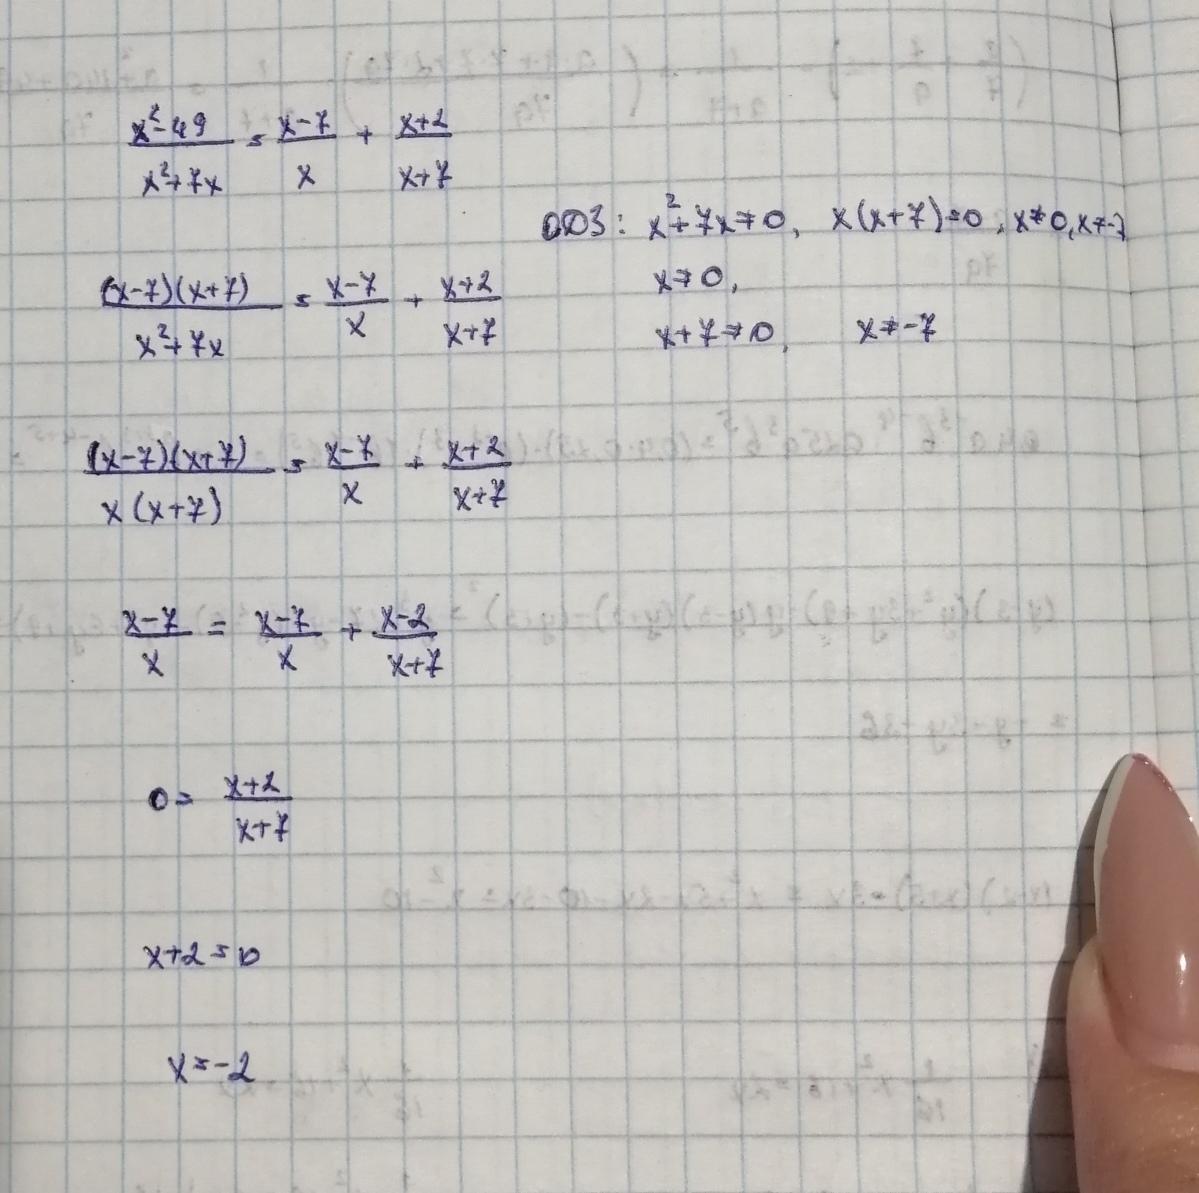 (x²-49)/(x²+7x) = (x-7)/x + (x+2)/(x+7)
ОДЗ: x²+7x≠0, x(x+7)=0, x≠0, x≠-7
x≠0,
x+7≠0, x≠-7
((x-7)(x+7))/(x²+7x) = (x-7)/x + (x+2)/(x+7)
((x-7)(x+7))/(x(x+7)) = (x-7)/x + (x+2)/(x+7)
(x-7)/x = (x-7)/x + (x-2)/(x+7)
0 = (x+2)/(x+7)
x+2=0
x=-2